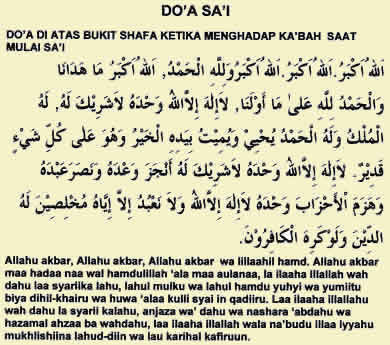 DO'A SA'I
DO'A DI ATAS BUKIT SHAFA KETIKA MENGHADAP KA'BAH SAAT
MULAI SA'I
اَللهُ اَكْبَرُ. اَللهُ اَكْبَرُ. اَللهُ اَكْبَرُ وَلِلّٰهِ الْحَمْدُ, اَللهُ اَكْبَرُ مَا هَدَانَا
وَالْحَمْدُ لِلّٰهِ عَلَى مَا أَوْلَنَا, لَاإِلٰهَ إِلَّااللهُ وَحْدَهُ لَاشَرِيْكَ لَهُ, لَهُ
الْمُلْكُ وَلَهُ الْحَمْدُ يُحْيِيْ وَيُمِيْتُ بِيَدِهِ الْخَيْرُ وَهُوَ عَلَى كُلِّ شَيْءٍ
قَدِيْرٌ. لَاإِلٰهَ إِلَّااللهُ وَحْدَهُ لَاشَرِيْكَ لَهُ أَنْجَزَ وَعْدَهُ وَنَصَرَعَبْدَهُ
وَهَزَمَ الْأَحْزَابَ وَحْدَهُ لَاإِلٰهَ إِلَّااللهُ وَلَا نَعْبُدُ إِلَّا إِيَّاهُ مُخْلِصِيْنَ لَهُ
الدِّيْنَ وَلَوْكَرِهَ الْكَافِرُوْنَ.
Allahu akbar, Allahu akbar, Allahu akbar wa lillaahil hamd. Allahu akbar
maa hadaa naa wal hamdulillah 'ala maa aulanaa, la ilaaha illallah wah
dahu laa syariika lahu, lahul mulku wa lahul hamdu yuhyi wa yumiitu
biya dihil-khairu wa huwa 'alaa kulli syai in qadiiru. Laa ilaaha illallahu
wah dahu la syarii kalahu, anjaza wa' dahu wa nashara 'abdahu wa
hazamal ahzaa ba wahdahu, laa ilaaha illallah wala na'budu illaa Iyyahu
mukhlishiina lahud-diin wa lau karihal kafiruun.